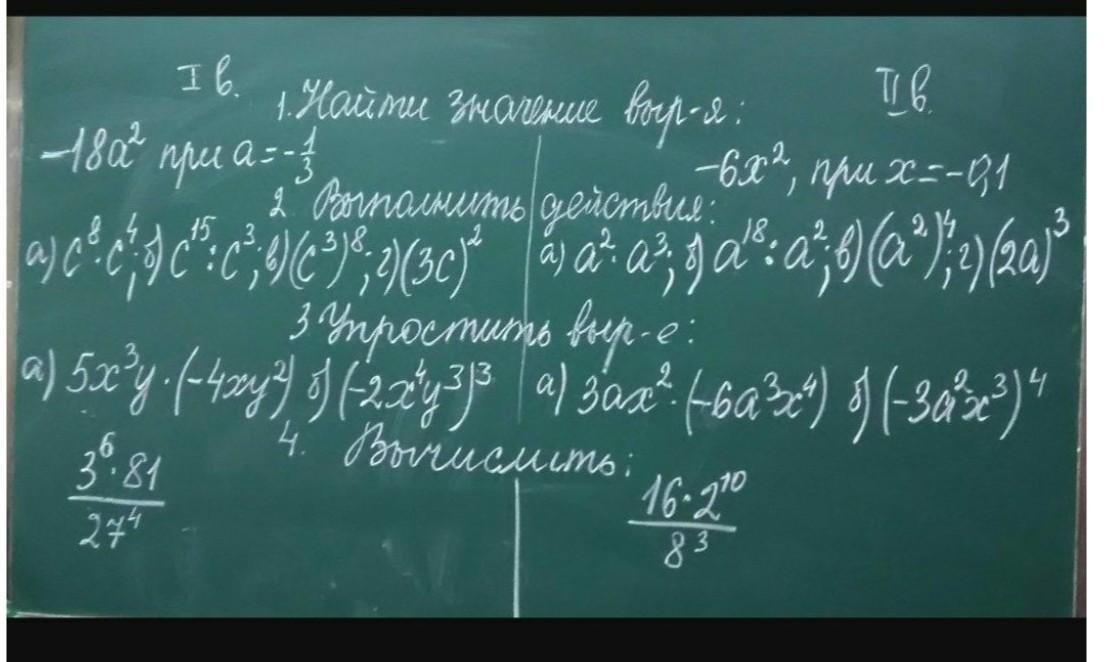 I в. II в.
1. Найти значение выр-я:
-18a² при a = -1/3
-6x², при x = -0,1
2. Выполнить действия:
а) c⁸·c⁴; б) c¹⁵:c³; в) (c³)⁸; г) (3c)²
а) a²·a³; б) a¹⁸:a²; в) (a²)⁴; г) (2a)³
3 Упростить выр-е:
а) 5x³y·(-4xy²) б) (-2x⁴y³)³
а) 3ax²·(-6a³x⁴) б) (-3a²x³)⁴
4. Вычислить:
3⁶·81
27⁴
16·2¹⁰
8³